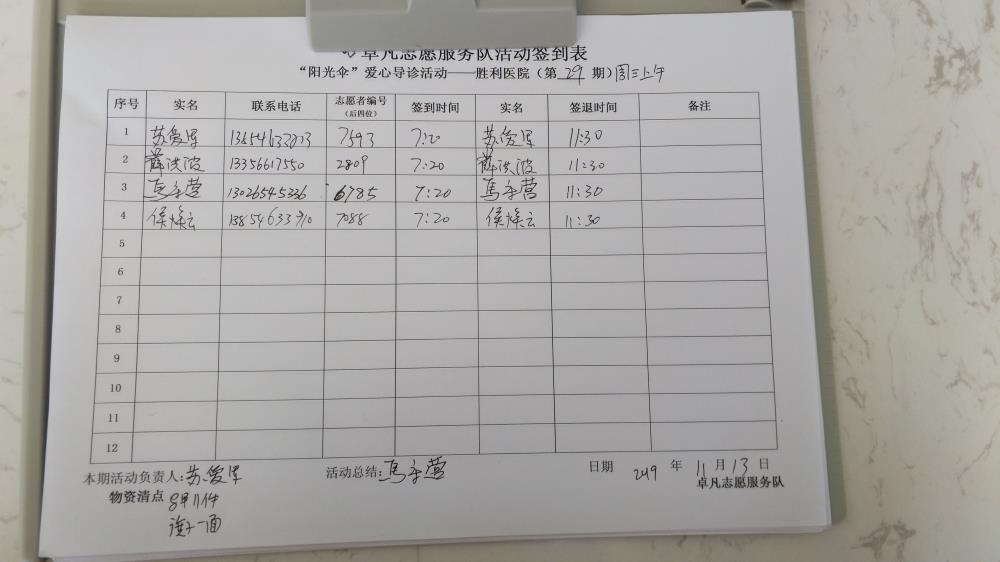 卓凡志愿服务队活动签到表
“阳光伞”爱心导诊活动——胜利医院（第 29 期）周三上午
序号 实名 联系电话 志愿者编号（后四位） 签到时间 实名 签退时间 备注
1 苏爱军 7593 7:20 苏爱军 11:30
2 薛洪波 13356617550 2809 7:20 薛洪波 11:30
3 马军营 13026545336 6785 7:20 马军营 11:30
4 侯焕云 7088 7:20 侯焕云 11:30
5
6
7
8
9
10
11
12
本期活动负责人：苏爱军 活动总结：马军营 日期 2019 年 11 月 13 日
物资清点 卓凡志愿服务队
一面